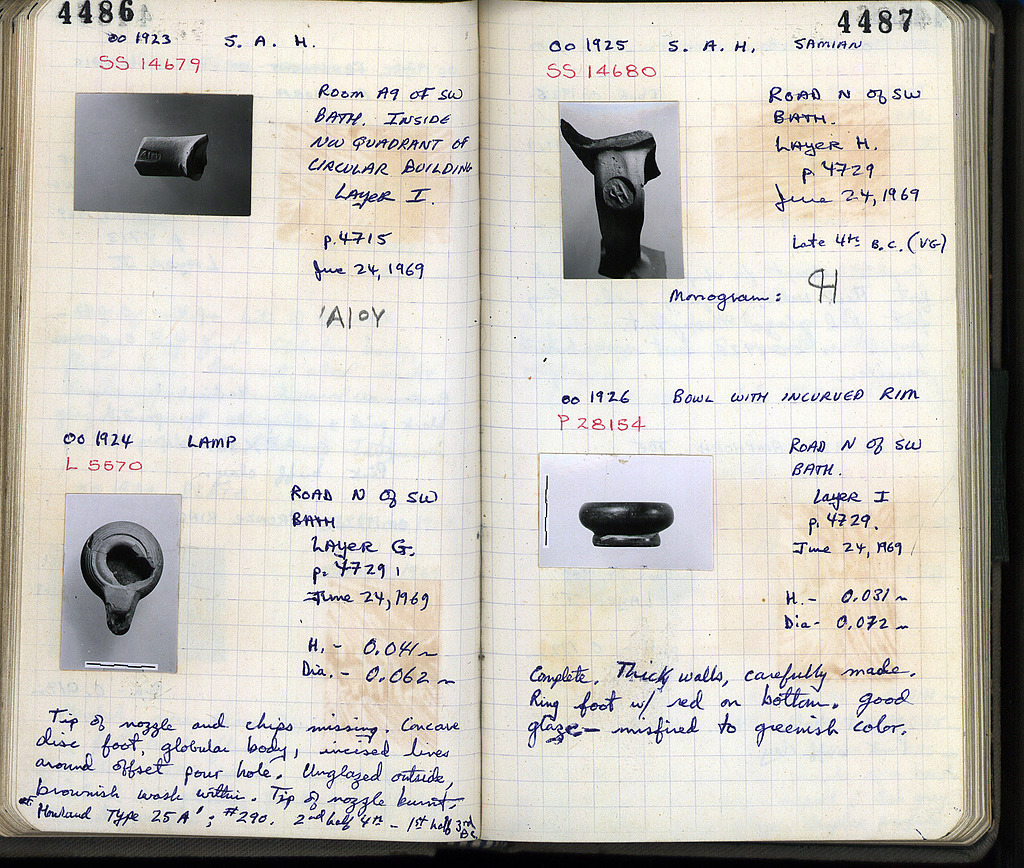 4486
OO 1923 S. A. H.
SS 14679
ROOM A9 OF SW
BATH. INSIDE
NW QUADRANT OF
CIRCULAR BUILDING
LAYER I.
p. 4715
June 24, 1969
'A|OY
OO 1924 LAMP
L 5570
ROAD N OF SW
BATH
LAYER G.
p. 4729
June 24, 1969
H. - 0.041 m
Dia. - 0.062 m
Tip of nozzle and chips missing. Concave
disc foot, globular body, incised lines
around offset pour hole. Unglazed outside,
brownish wash within. Tip of nozzle burnt.
cf. Howland Type 25 A'; #290. 2nd half 4th - 1st half 3rd BC
4487
OO 1925 S. A. H. SAMIAN
SS 14680
ROAD N OF SW
BATH.
LAYER H.
p. 4729
June 24, 1969
Late 4th B.C. (VG)
Monogram:
OO 1926 BOWL WITH INCURVED RIM
P 28154
ROAD N OF SW
BATH.
Layer I
p. 4729.
June 24, 1969
H. - 0.031 m
Dia - 0.072 m
Complete. Thick walls, carefully made.
Ring foot w/ red on bottom. good
glaze - misfired to greenish color.